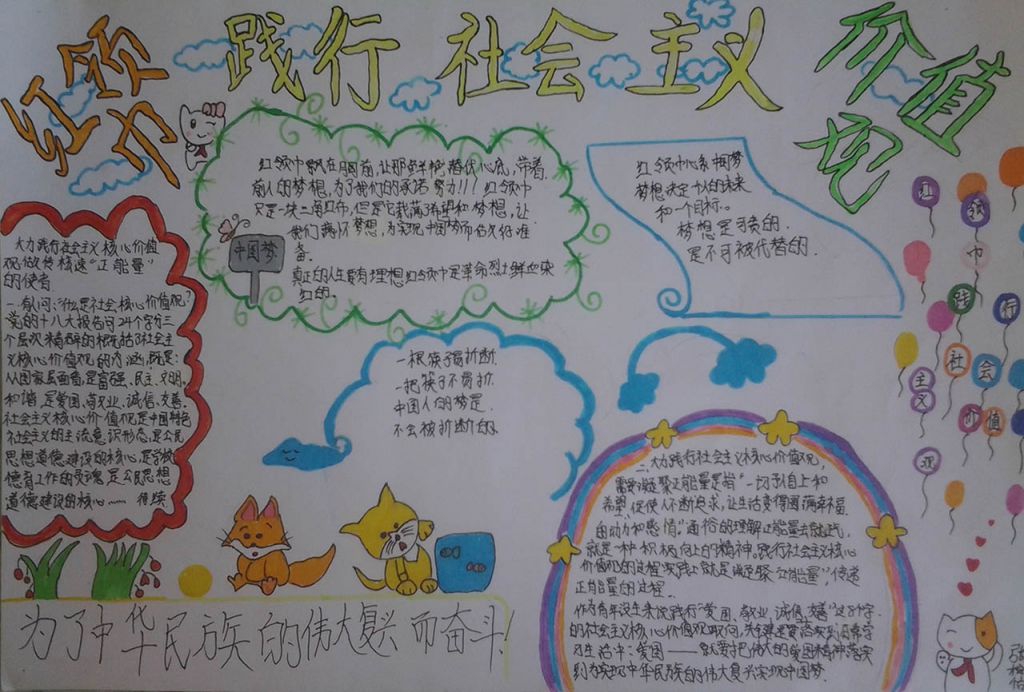 红领巾
践行 社会主义
价值观
红领巾飘在胸前,让那鲜艳替代心底,带着
前人的梦想,为了我们的承诺努力!!!红领巾
只是一块三角红布,但是它载满了希望和梦想,让
我们满怀梦想,为实现中国梦而时刻准
备。
真正的人生要有理想红领巾是革命烈士鲜血染
红的。
中国梦
红领巾心系中国梦
梦想决定十人的未来
和一个目标。
梦想是寻贵的.
是不可被代替的.
大力践行社会主义核心价值
观做传核速“正能量”
的使者
一.有人问:什么是社会核心价值观?
党的十八大报告可24个字分三
个层次精辟的概括了社会主
义核心价值观的内涵,既是:
从国家层面看,是富强、民主、文明、
和谐,是爱国、敬业、诚信、友善.
社会主义核心价值观是中国特色
社会主义的主流意识形态,是公民
思想道德建设的核心,是学校
德育工作的灵魂,是公民思想
道德建设的核心…… 待续
一根筷子易折断.
一把筷子不易折.
中国人的梦是.
不会被折断的.
红领巾
践行
社会
主义
价值
观
二.大力践行社会主义核心价值观,
需要凝聚正能量是指“一切予人向上和
希望,促使人不断追求,让生活变得圆满幸福
的动力和感情.”通俗的理解正能量去就此,
就是一种积极向上的精神.践行社会主义核心
价值观的过程实践上就是凝聚“正能量”传递
正能量的过程.
作为青年学生来说践行“爱国、敬业、诚信、友善”这8个字
的社会主义核心价值观取向,关键是要落实到日常学
习生活中:爱国——就要把伟大的爱国精神落实
到为实现中华民族的伟大复兴实现中国梦.
为了中华民族的伟大复兴而奋斗!